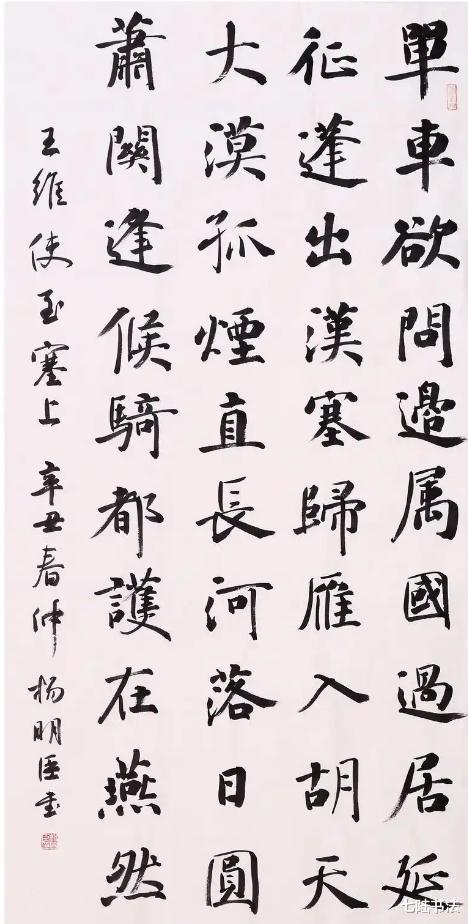 單車欲問邊属國過居延
征蓬出漢塞歸雁入胡天
大漠孤煙直長河落日圓
蕭關逢候騎都護在燕然
王維使至塞上 辛丑春仲 楊明臣書
七陆书法